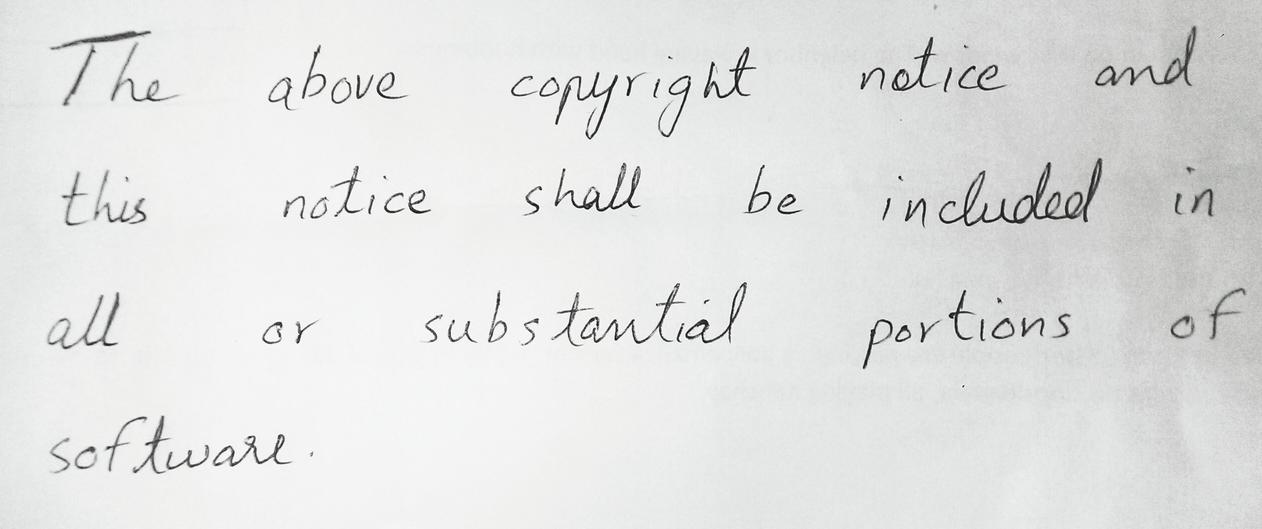 The above copyright notice and
this notice shall be included in
all or substantial portions of
software.